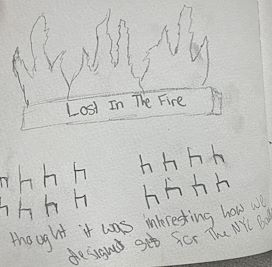 Lost In The Fire
thought it was interesting how we
designed for The NYC